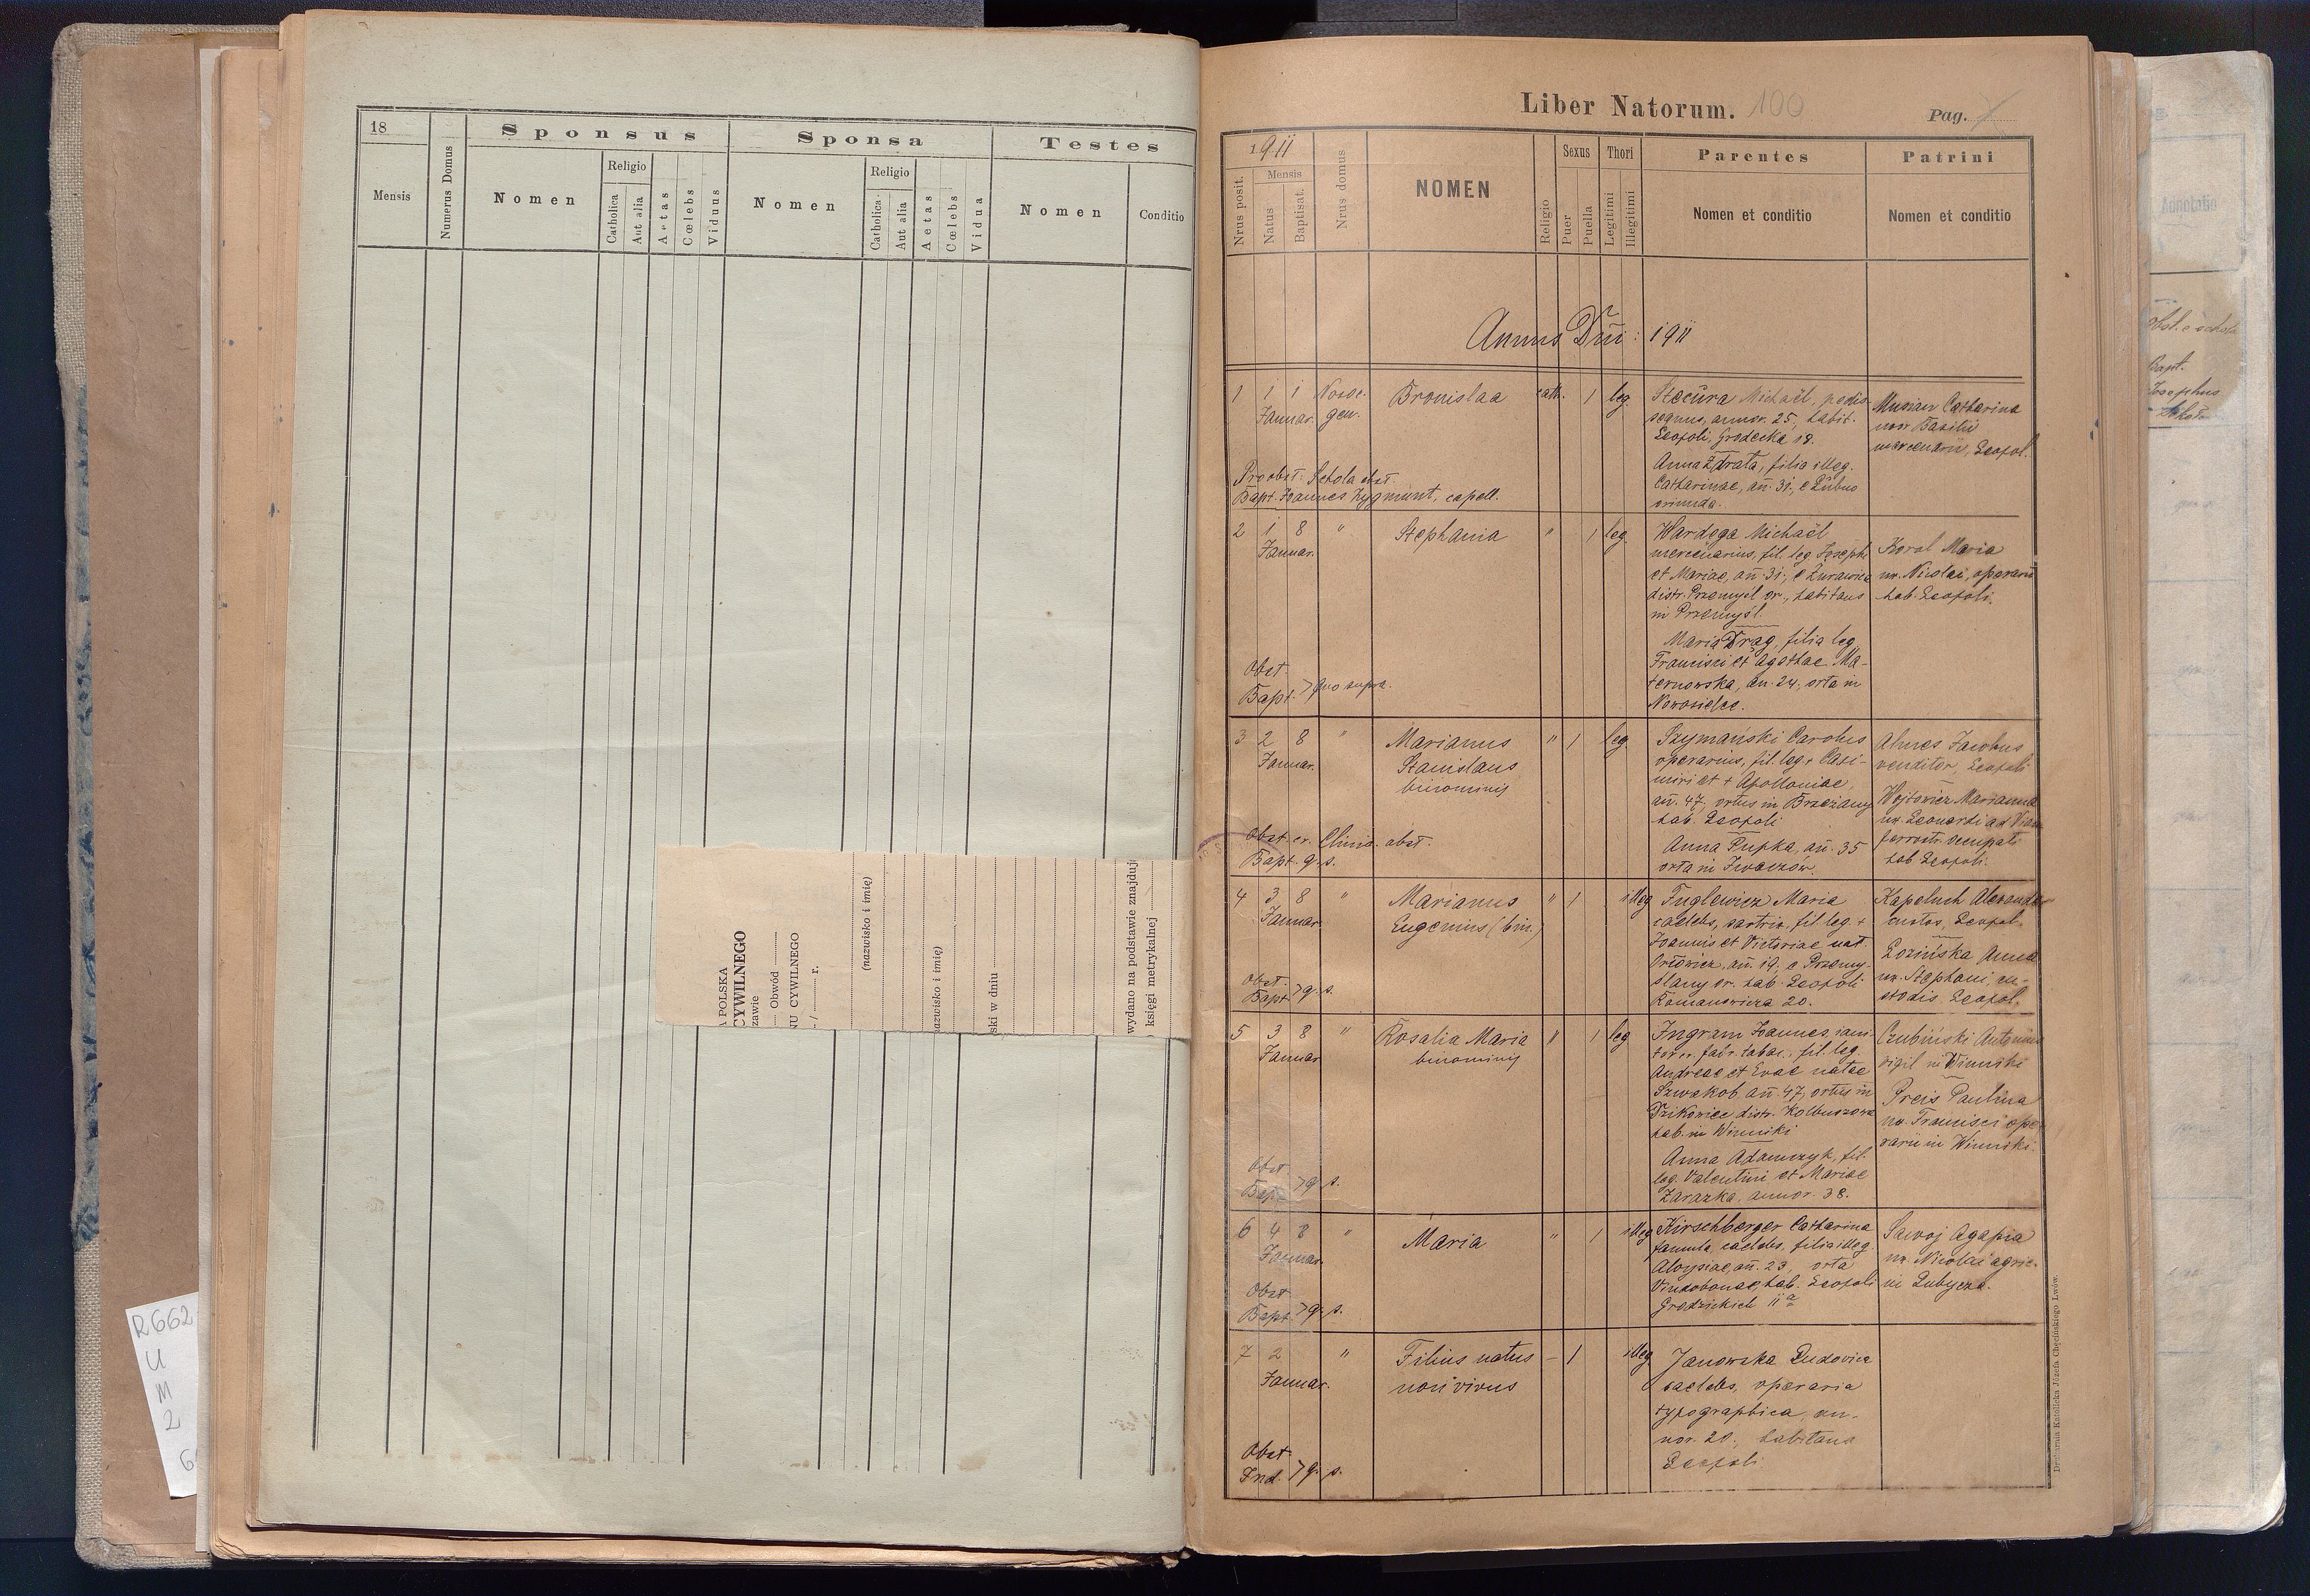 18
Mensis
Numerus Domus
Sponsus
Nomen
Religio
Catholica
Aut alia
Aetas
Cœlebs
Viduus
Sponsa
Nomen
Religio
Catholica
Aut alia
Aetas
Cœlebs
Vidua
Testes
Nomen
Conditio
A POLSKA
CYWILNEGO
zawie
Obwód
NU CYWILNEGO
r.
(nazwisko i imię)
azwisko i imię)
ski w dniu
wydano na podstawie znajduj
księgi metrykalnej
R662
U
M
2
Liber Natorum. 100
Pag.
1911
Nrus posit.
Mensis
Natus
Baptisat.
Nrus domus
NOMEN
Religio
Sexus
Puer
Puella
Thori
Legitimi
Illegitimi
Parentes
Nomen et conditio
Patrini
Nomen et conditio
Annus Dni: 1911
1 1 1 Nosoc. Bronislaa cath. 1 leg.
Januar. gen.
Stecura Michaël, pedis-
sequus, annor. 25, habit.
Leopoli, Grodecka 18.
Anna Zdrata, filia illeg.
Catharinae, an. 31, e
oriunda.
Musian Catharina
uxor Basilii
mercenarii, Leopol.
Pro obst. Schola obst.
Bapt. Joannes Zygmunt, capell.
2 1 8 " Stephania " 1 leg.
Januar.
Wardega Michaël
mercenarius, fil. leg. Josephi
et Mariae, an. 31, e Żurawica
distr. Przemyśl or., habitans
in Przemyśl.
Maria Drag, filia leg.
Francisci et Agathae Ma-
ternowska, an. 24, orta in
Nowosielce.
Korol Maria
ux. Nicolai, operarii
hab. Leopoli.
Obst.
Bapt. > quo supra.
3 2 8 " Marianus " 1 leg.
Januar. Stanislaus
binominis
Szymański Carolus
operarius, fil. leg. + Casi-
miri et + Apolloniae,
an. 47, ortus in Brzeżany
hab. Leopoli
Anna Pupka, an. 35
orta in Iwaczów.
Jacobus
venditor, Leopoli
Wojtowicz Marianna
ux. Leonardi ad Viam
ferrostr. occupati
hab. Leopoli.
Obst. ex Clinic. obst.
Bapt. q. s.
4 3 8 " Marianus " 1 illeg
Januar. Eugenius (bin.)
Tuglewicz Maria
caelebs, sartrix, fil. leg. +
Joannis et Victoriae nat.
Orłowicz, an. 19, e Przemy-
ślany or. hab. Leopoli
Romanowicza 20.
Kapeluch Alexander
custos, Leopol.
Łozińska Anna
ux. Stephani, cu-
stodis, Leopol.
Obst.
Bapt. > q. s.
5 3 8 " Rosalia Maria " 1 leg
Januar. binominis
Ingram Joannes, iani-
tor fabr. tabac., fil. leg.
Andreae et Evae natae
Szwakob an. 47, ortus in
Dzikowiec distr. Kolbuszowa
hab. in Winniki
Anna Adamczyk, fil.
leg. Valentini et Mariae
Zarazka, annor. 38.
Czubiński Antonius
vigil in Winniki
Preis Paulina
ux. Francisci ope-
rarii in Winniki.
Obst.
Bapt. > q. s.
6 4 8 " Maria " 1 illeg
Januar.
Kirschberger Catharina
famula, caelebs, filia illeg.
Aloysiae, an. 23, orta
Vindobonae, hab. Leopoli
Grodzickich 11 a
Sawoj Agapia
ux. Nicolai agric.
in Lubycza.
Obst.
Bapt. > q. s.
7 2 " Filius natus – 1 illeg
Januar. non vivus
Janowska Ludovica
caelebs, operaria
typographica, an-
nor. 20., habitans
Leopoli.
Obst.
Ind. > q. s.
Drukarnia Katolicka Józefa Chęcińskiego Lwów.
Annotatio
Obst. e schola
Bapt.
Josephus